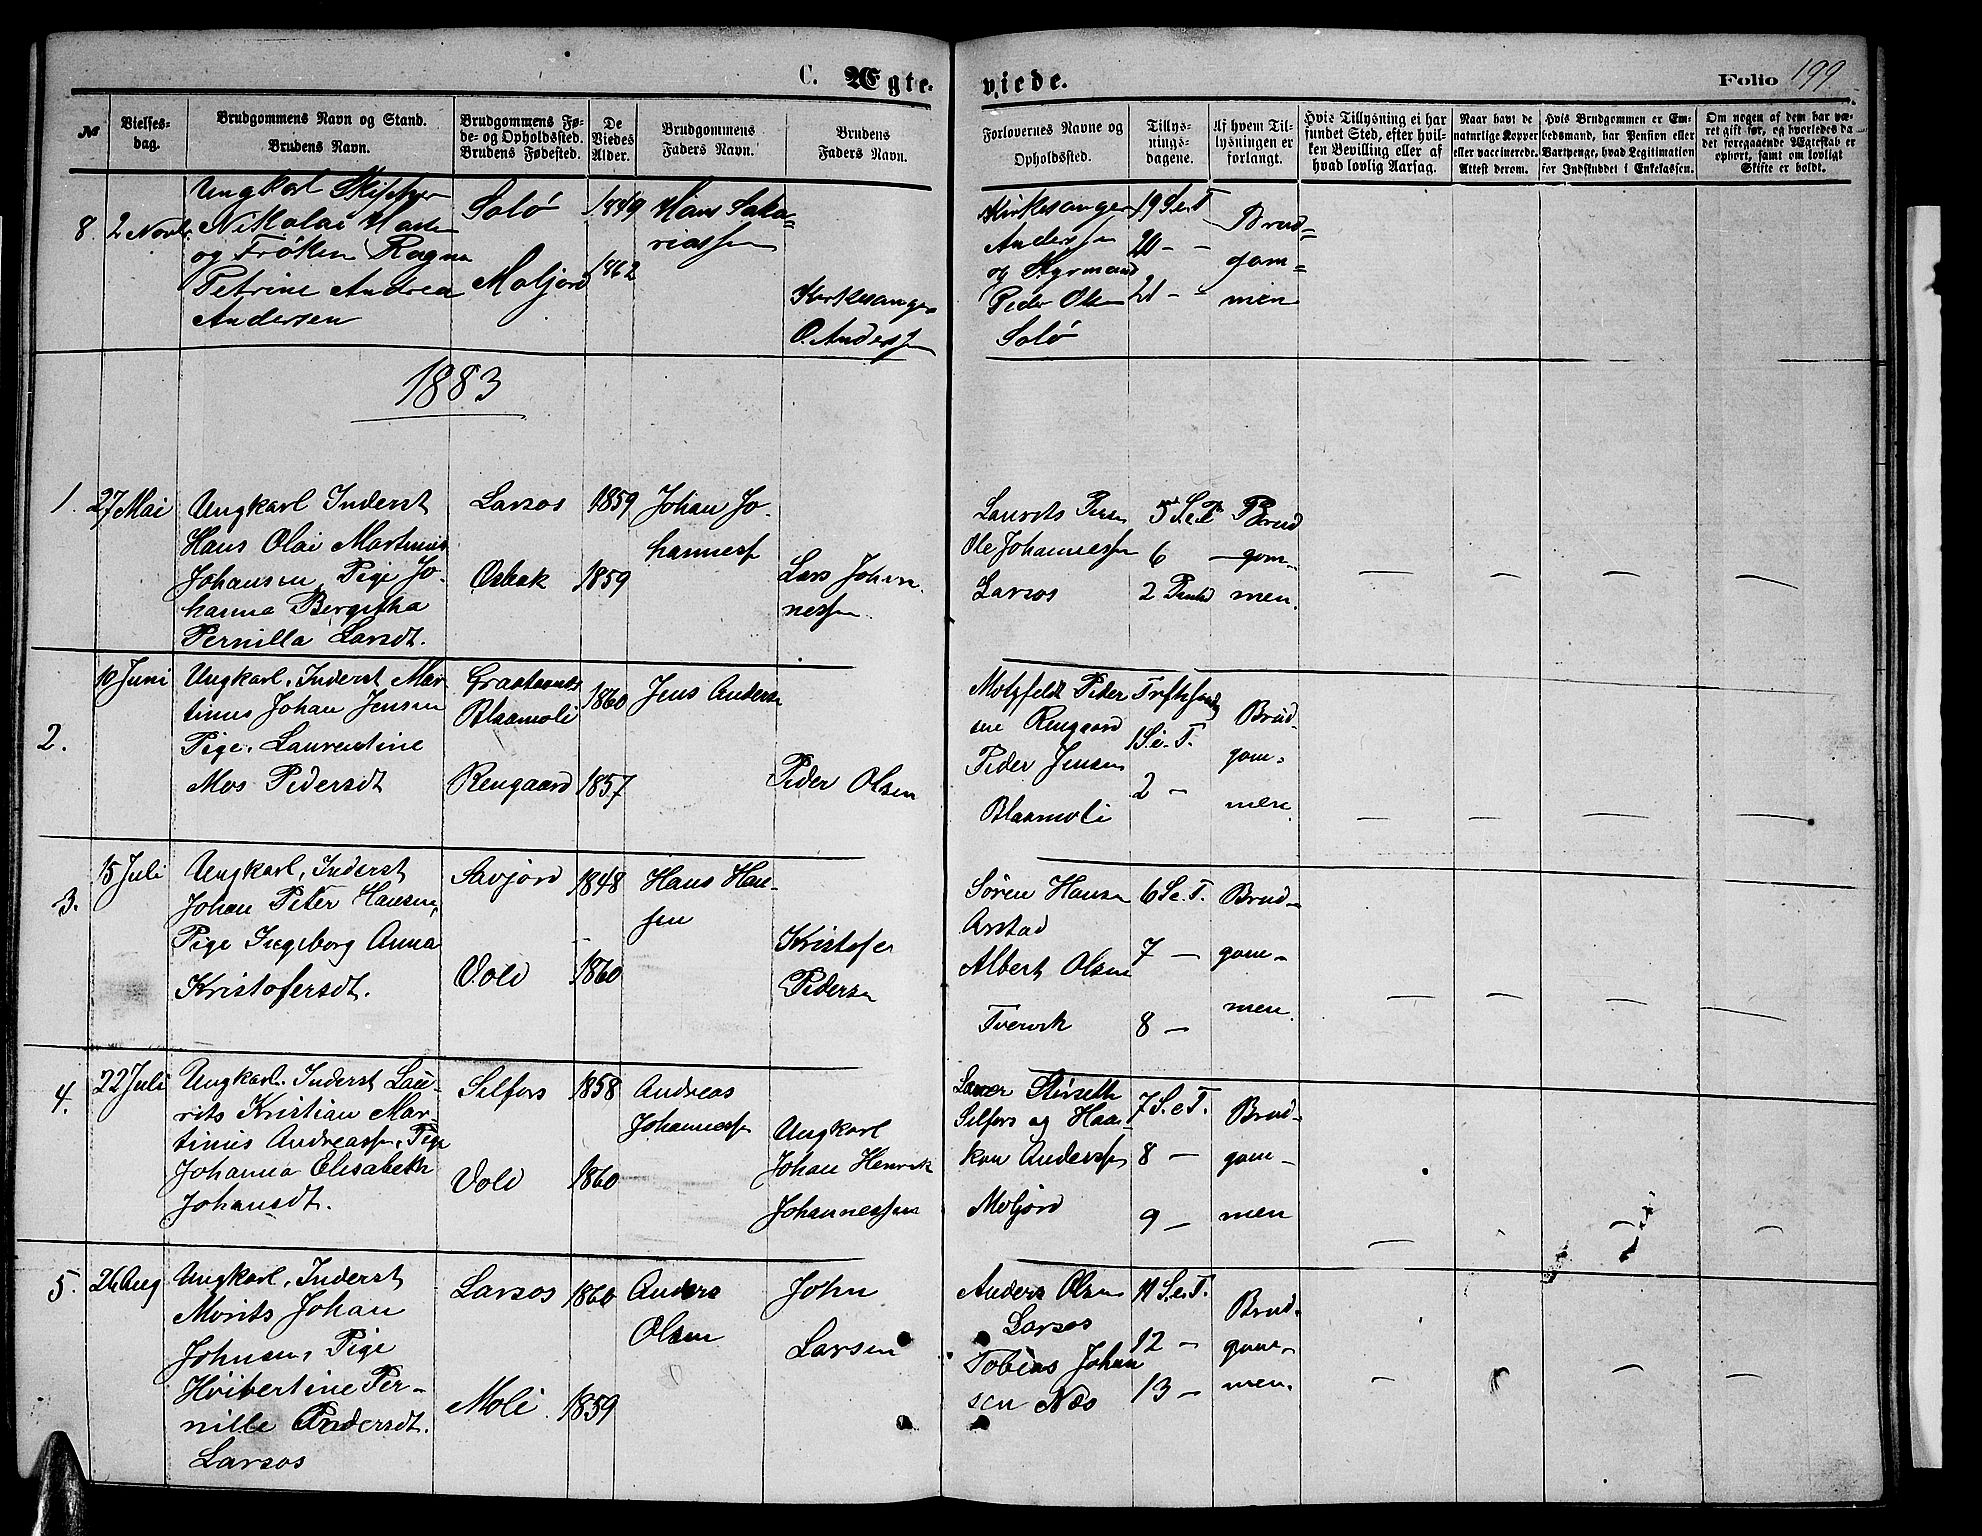 C. Ægte-
viede.
Folio 199.
№
Vielses-
dag.
Brudgommens Navn og Stand.
Brudens Navn.
Brudgommens Fø-
de- og Opholdssted.
Brudens Fødested.
De
Viedes
Alder.
Brudgommens
Faders Navn.
Brudens
Faders Navn.
Forlovernes Navne og
Opholdssted.
Tillys-
nings-
dagene.
Af hvem Til-
lysningen er
forlangt.
Hvis Tillysning ei har
fundet Sted, efter hvil-
ken Bevilling eller af
hvad lovlig Aarsag.
Naar havt de
naturlige Kopper
eller vaccinerede.
Attest derom.
Hvis Brudgommen er Em-
bedsmand, har Pension eller
Vartpenge, hvad Legitimation
for Indskuddet i Enkekassen.
Om nogen af dem har væ-
ret gift før, og hvorledes da
det foregaaende Ægteskab er
ophørt, samt om lovligt
Skifte er holdt.
8. 2 Novbr.
Ungkarl Skipper
Nikolai Hansen
og Frøken Ragna
Petrine Andrea
Andersen
Solø
Moljord
1849
1862
Hans Saka=
riassen
Kirkesanger
O. Anderssen
Kirkesanger
Anderssen
og Styrmand
Peder Olsen
Solø
19 S. e. T.
20 - -
21 - -
Brud=
gom=
men
1883
1. 27 Mai
Ungkarl Inderst
Hans Olai Martinus
Johansen, Pige Jo-
hanna Bergitha
Pernilla Larsdt.
Larsos
Osbak
1859
1859
Johan Jo-
hannessen
Lars Johan-
nessen
Laurits
Ole Johannessen
Larsos
5 S. e. P.
6 —
2
Brud
gom-
men.
2.
10 Juni
Ungkarl, Inderst Mar-
tinus Johan Jensen
Pige, Laurentine
Mos Pedersdt
Blaamoli
Rengaard
1860
1857
Jens Andersen
Peder Olsen
Motzfeldt Peder
sen Rengaard
Peder Jensen
Blaamoli
1 S. e. T.
2 —
Brud-
gom-
men
3.
15 Juli
Ungkarl, Inderst
Johan Peter Hansen,
Pige Ingeborg Anna
Kristofersdt.
Savjord
Vold
1848
1860
Hans Han-
sen
Kristofer
Pedersen
Søren Hansen
Arstad
Albert Olsen
Tvervik
6 S. e. T.
7 —
8 —
Brud-
gom-
men.
4.
22 Juli
Ungkarl. Inderst Lau-
rits Kristian Mar-
tinus Andreassen, Pige
Johanna Elisabeth
Johansdt.
Selfors
Vold
1858
1860
Andreas
Johannessen
Ungkarl
Johan Henrik
Johannessen
Selfors og Haa-
kon Anderssen
Moljord
7 S. e. T.
8 —
9 —
Brud-
gom-
men
5. 26 Aug
Ungkarl, Inderst
Morits Johan
Johnsen, Pige
Hövertine Per-
nille Andersdt.
Larsos
Larsos
Moli
1860
1859
Anders
Olsen
John
Larsen
Anders Olsen
Larsos
Tobias Johan
sen Næs
11 S. e. T.
12 —
13 —
Brud-
gom-
men.